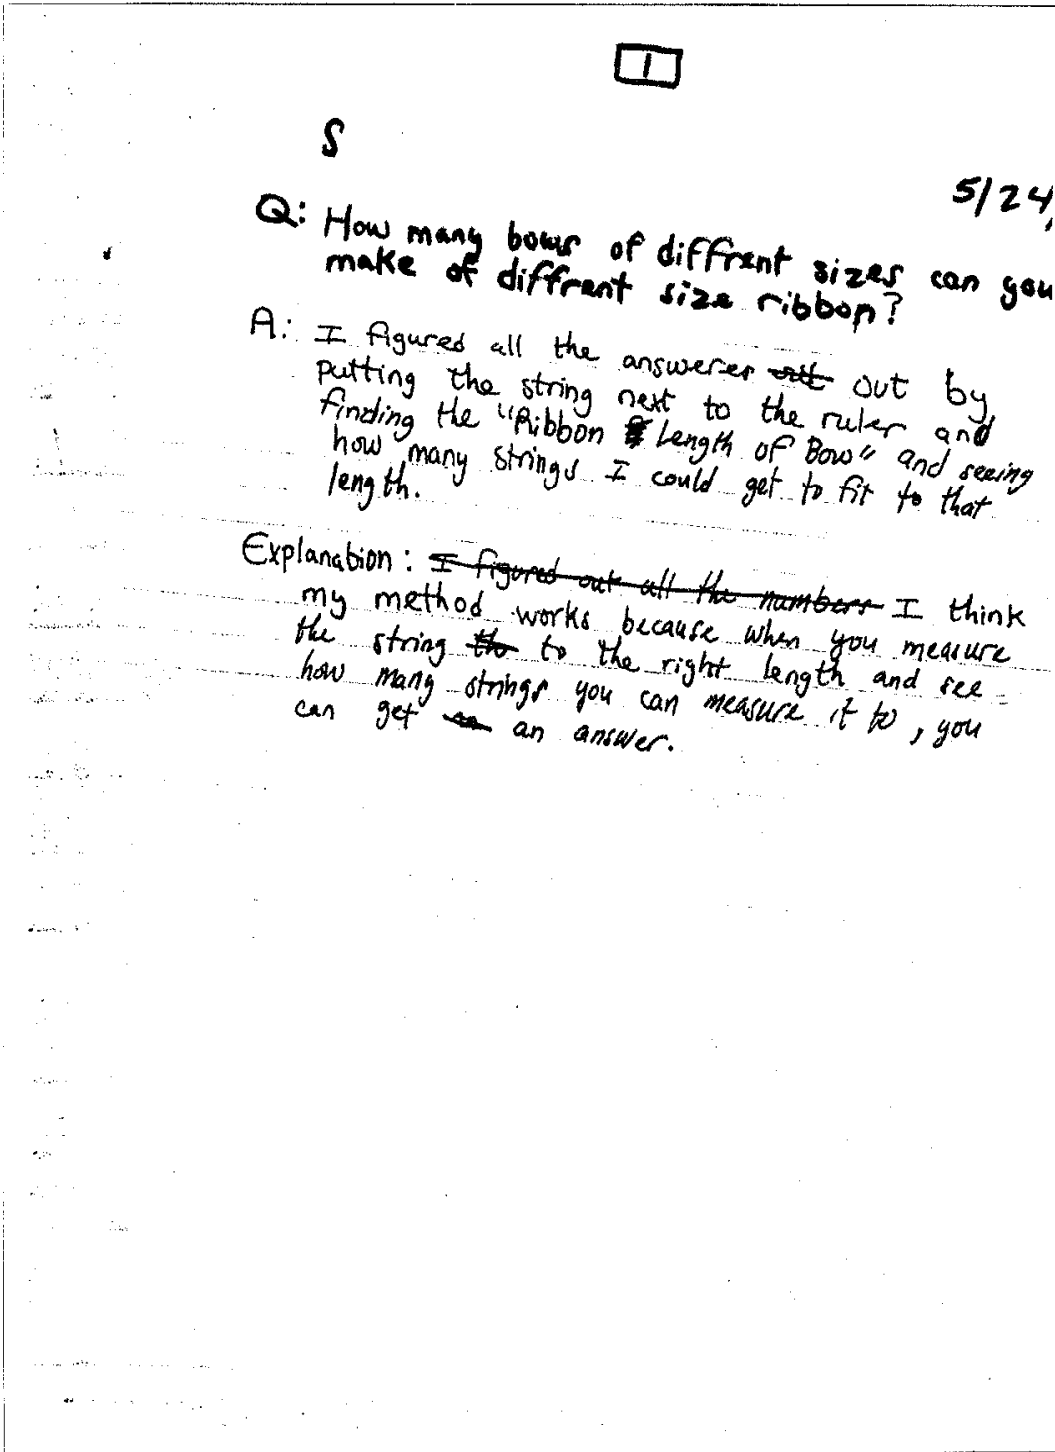 1
S
5/24,
Q: How many bows of diffrent sizes can you
make of diffrent size ribbon?
A: I figured all the answerer out out by
putting the string next to the ruler and
finding the "Ribbon Length of Bow" and seeing
how many strings I could get to fit to that
length.
Explanation: I figured out all the numbers I think
my method works because when you measure
the string the to the right length and see
how many strings you can measure it to, you
can get an answer.